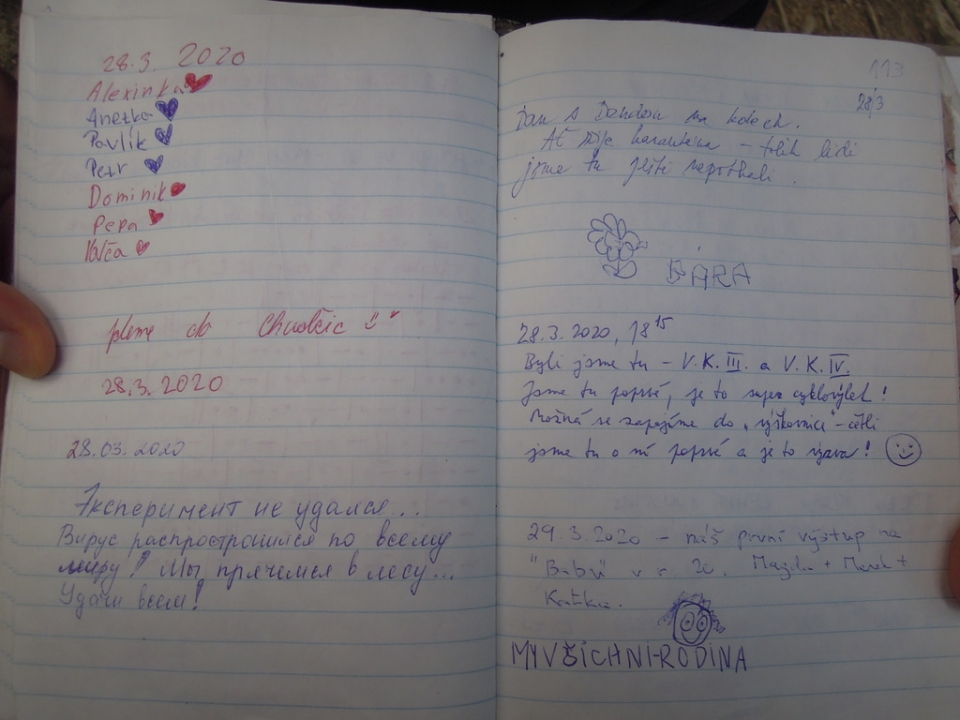 28.3. 2020
Alexinka
Anetka
Pavlík
Petr
Dominik
Pepa
Káča
jdeme do Chudčic
28.3.2020
28.03.2020
Эксперимент не удался...
Вирус распространился по всему
миру! Мы прячемся в лесу...
Удачи всем!
113
28/3
Dan s Dandou na kolech.
Ať žije karanténa - tolik lidí
jsme tu ještě nepotkali.
BÁRA
28.3.2020, 18 15
Byli jsme tu - V.K. III. a V.K. IV.
Jsme tu poprvé, je to super cyklovýlet!
Možná se zapojíme do „výškovnice" - četli
jsme tu o ní poprvé a je to výzva!
29.3.2020 - náš první výstup na
"Babu" v r. 20. Magda + Marek +
MY VŠICHNI-RODINA